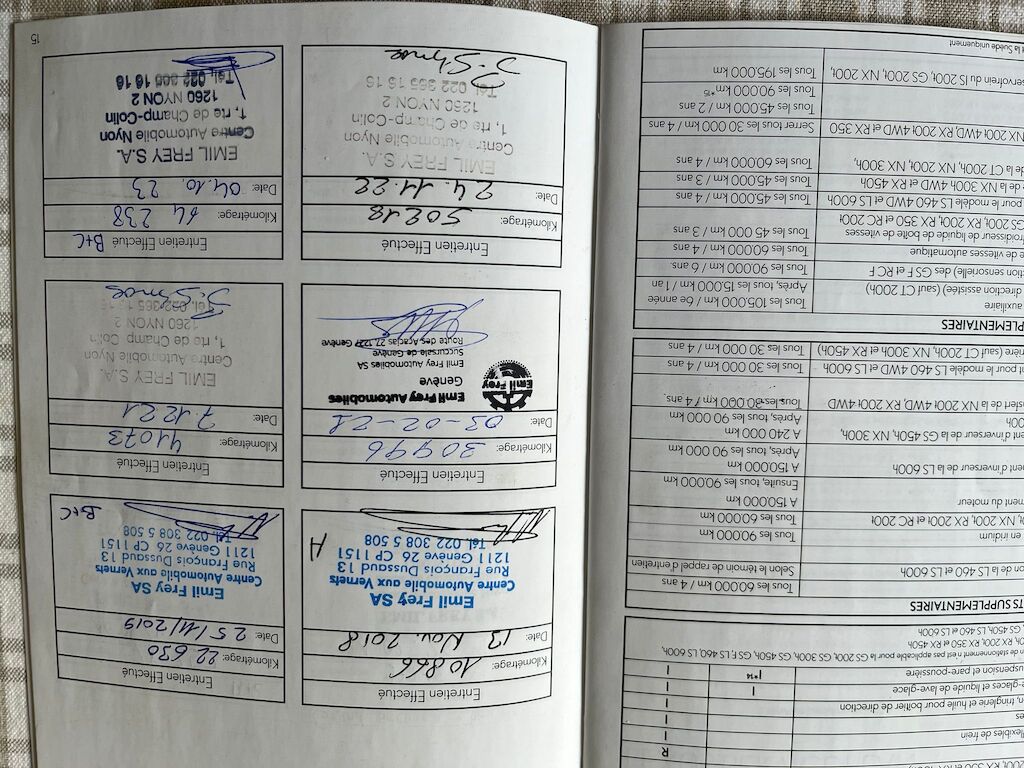 R
flexibles de frein I
n, tringlerie et huile pour boîtier de direction I
glace-glaces et liquide de lave-glace I I
uspension et pare-poussière I*14 I
n de stationnement n'est pas applicable pour la GS 200t, GS 300h, GS 450h, GS F, LS 460, LS 600h,
RX 350 et RX 450h
GS 450h, LS 460 et LS 600h
TS SUPPLEMENTAIRES
Tous les 60.000 km / 4 ans
on de la LS 460 et LS 600h Selon le témoin de rappel de fréquence d'entretien
en iridium Tous les 90.000 km
NX 200t, RX 200t et RC 200t Tous les 60.000 km
nt du moteur A 150.000 km
Ensuite, tous les 90.000 km
nt d'inverseur de la LS 600h A 150000 km
Après, tous les 90 000 km
nt d'inverseur de la GS 450h, NX 300h, A 240 000 km
Après, tous les 90 000 km
nsfert de la NX 200t 4WD, RX 200t 4WD Tous les 30.000 km / 4 ans.
nt pour le modèle LS 460 4WD et LS 600h Tous les 30 000 km / 4 ans
rière (sauf CT 200h, NX 300h et RX 450h) Tous les 30 000 km / 4 ans
PPLEMENTAIRES
auxiliaire Tous les 105.000 km / 6e année
direction assistée) (sauf CT 200h) Après, tous les 15.000 km / 1 an
ction sensorielle) des GS F et RC F Tous les 90.000 km / 6 ans
te de vitesses automatique Tous les 60.000 km / 4 ans
froidisseur de liquide de boîte de vitesses
GS 200t, RX 200t, RX 350 et RC 200t Tous les 45 000 km / 3 ans
pour le modèle LS 460 4WD et LS 600h Tous les 45.000 km / 4 ans
de la NX 300h 4WD et RX 450h Tous les 45.000 km / 3 ans
de la CT 200h, NX 200t, NX 300h, Tous les 60.000 km / 4 ans
200t 4WD, RX 200t 4WD et RX 350 Serrer tous les 30 000 km / 4 ans
Tous les 45.000 km / 2 ans
Tous les 90.000 km*15
servofrein du IS 200t, GS 200t, NX 200t Tous les 195.000 km
et la Suède uniquement
Entretien Effectué
Kilométrage: 10866
Date: 13 Nov. 2018
Emil Frey SA
Centre Automobile aux Vernets
Rue François Dussaud 13
1211 Genève 26 CP 1151
Tél. 022 308 5 508
A
Entretien Effectué
Kilométrage: 22 630
Date: 25/11/2019
Emil Frey SA
Centre Automobile aux Vernets
Rue François Dussaud 13
1211 Genève 26 CP 1151
Tél. 022 308 5 508
B+C
Entretien Effectué
Kilométrage: 30996
Date: 03-02-21
Emil Frey
Emil Frey Automobiles
Genève
Emil Frey Automobiles SA
Succursale de Genève
Route des Acacias 27, 1227 Genève
Entretien Effectué
Kilométrage: 41073
Date: 7.12.21
EMIL FREY S.A.
Centre Automobile Nyon
1, rte de Champ-Colin
1260 NYON 2
Tél. 022 365 16 16
Entretien Effectué
Kilométrage: 50218
Date: 24.11.22
EMIL FREY S.A.
Centre Automobile Nyon
1, rte de Champ-Colin
1260 NYON 2
Tél. 022 365 16 16
Entretien Effectué B+C
Kilométrage: 64 238
Date: 04.10.23
EMIL FREY S.A.
Centre Automobile Nyon
1, rte de Champ-Colin
1260 NYON 2
Tél. 022 365 16 16
15